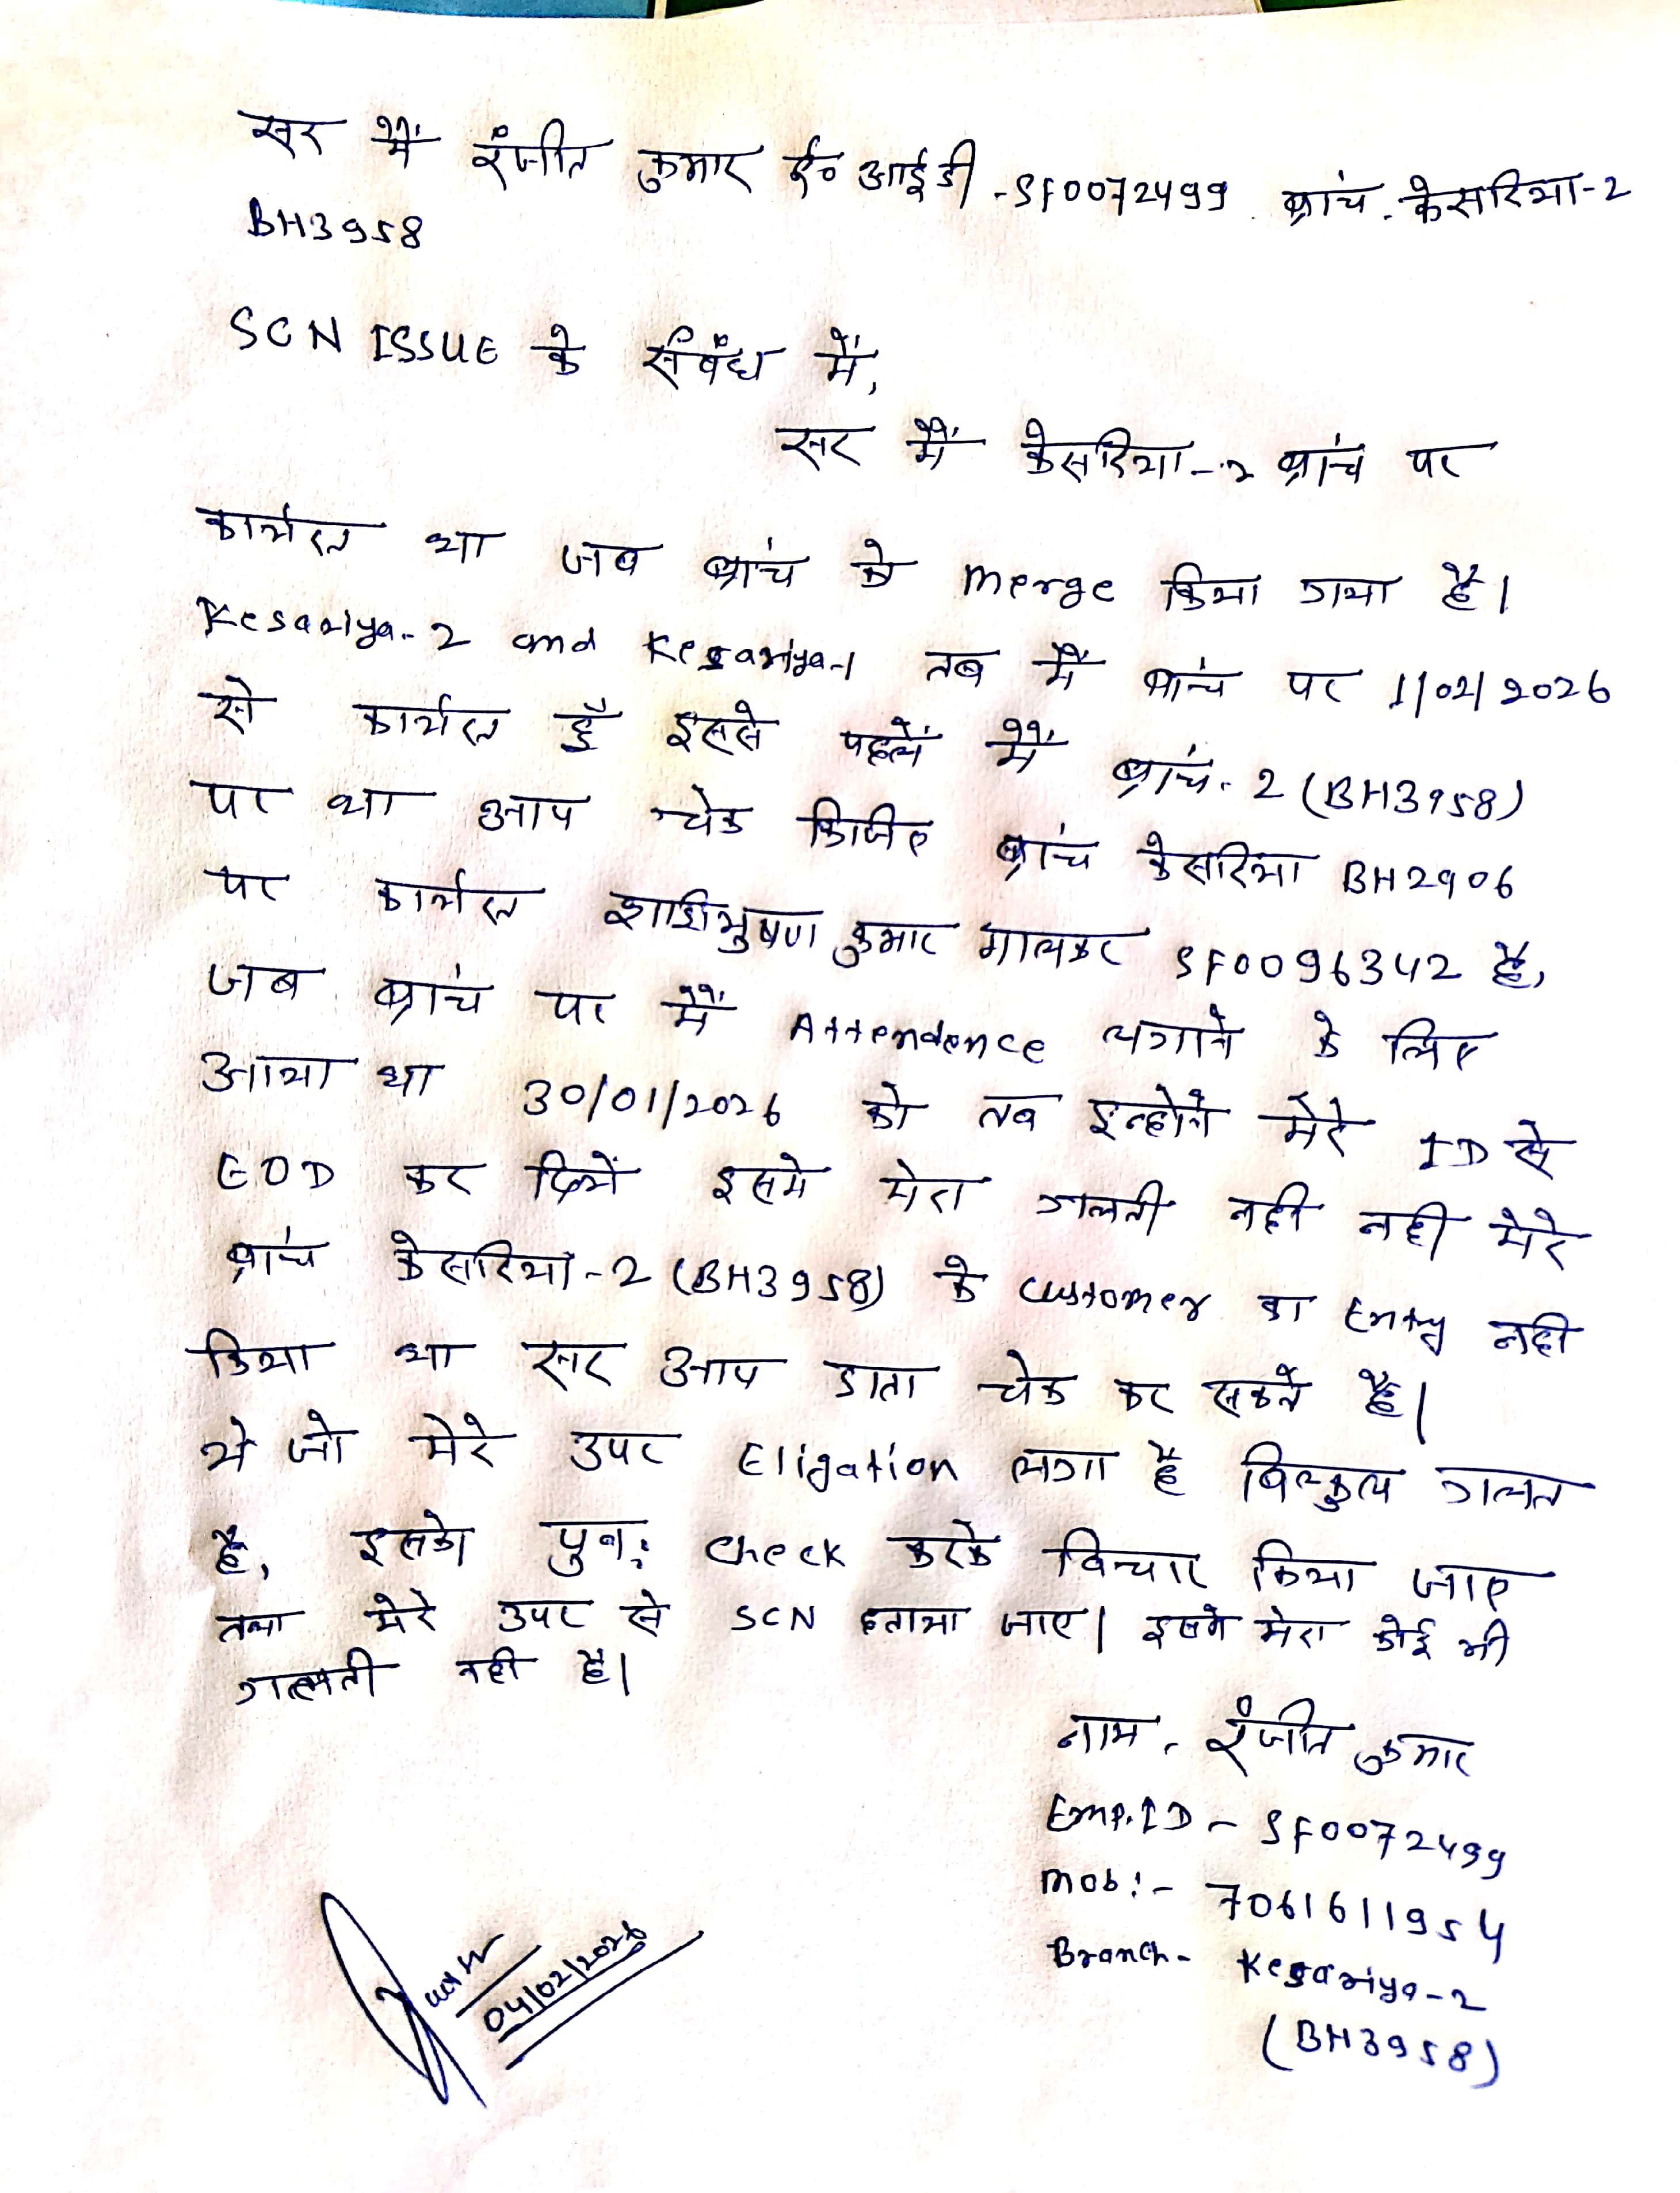 सर मैं रंजीत कुमार ई० आईडी - SF0072499. ब्रांच. केसरिया-2
BH3958
SCN ISSUE के संबंध में,
सर मैं केसरिया-2 ब्रांच पर
कार्यरत था जब ब्रांच के merge किया गया है।
Kesariya-2 and Kesariya-1 तब मैं ब्रांच पर 1/02/2026
से कार्यरत हुँ इससे पहलें मैं ब्रांच-2 (BH3958)
पर था आप चेक किजिए ब्रांच केसरिया BH2906
पर कार्यरत शाशिभुषण कुमार SF0096342 है,
जब ब्रांच पर मैं Attendence लगाने के लिए
आया था 30/01/2026 को तब इन्होने मेरे ID से
EOD कर दियें इसमे मेरा गलती नही नही मेरे
ब्रांच केसरिया-2 (BH3958) के customer का Entry नही
किया था सर आप डाता चेक कर सकते है।
ये जो मेरे उपर Eligation लगा है बिल्कुल गलत
है, इसको पुन: check करके विचार किया जाए
तथा मेरे उपर से SCN हताया जाए। इसमे मेरा कोई भी
गलती नही है।
नाम - रंजीत कुमार
Emp.ID - SF0072499
mob:- 7061611954
Branch - Kesariya-2
(BH3958)
04/02/2026